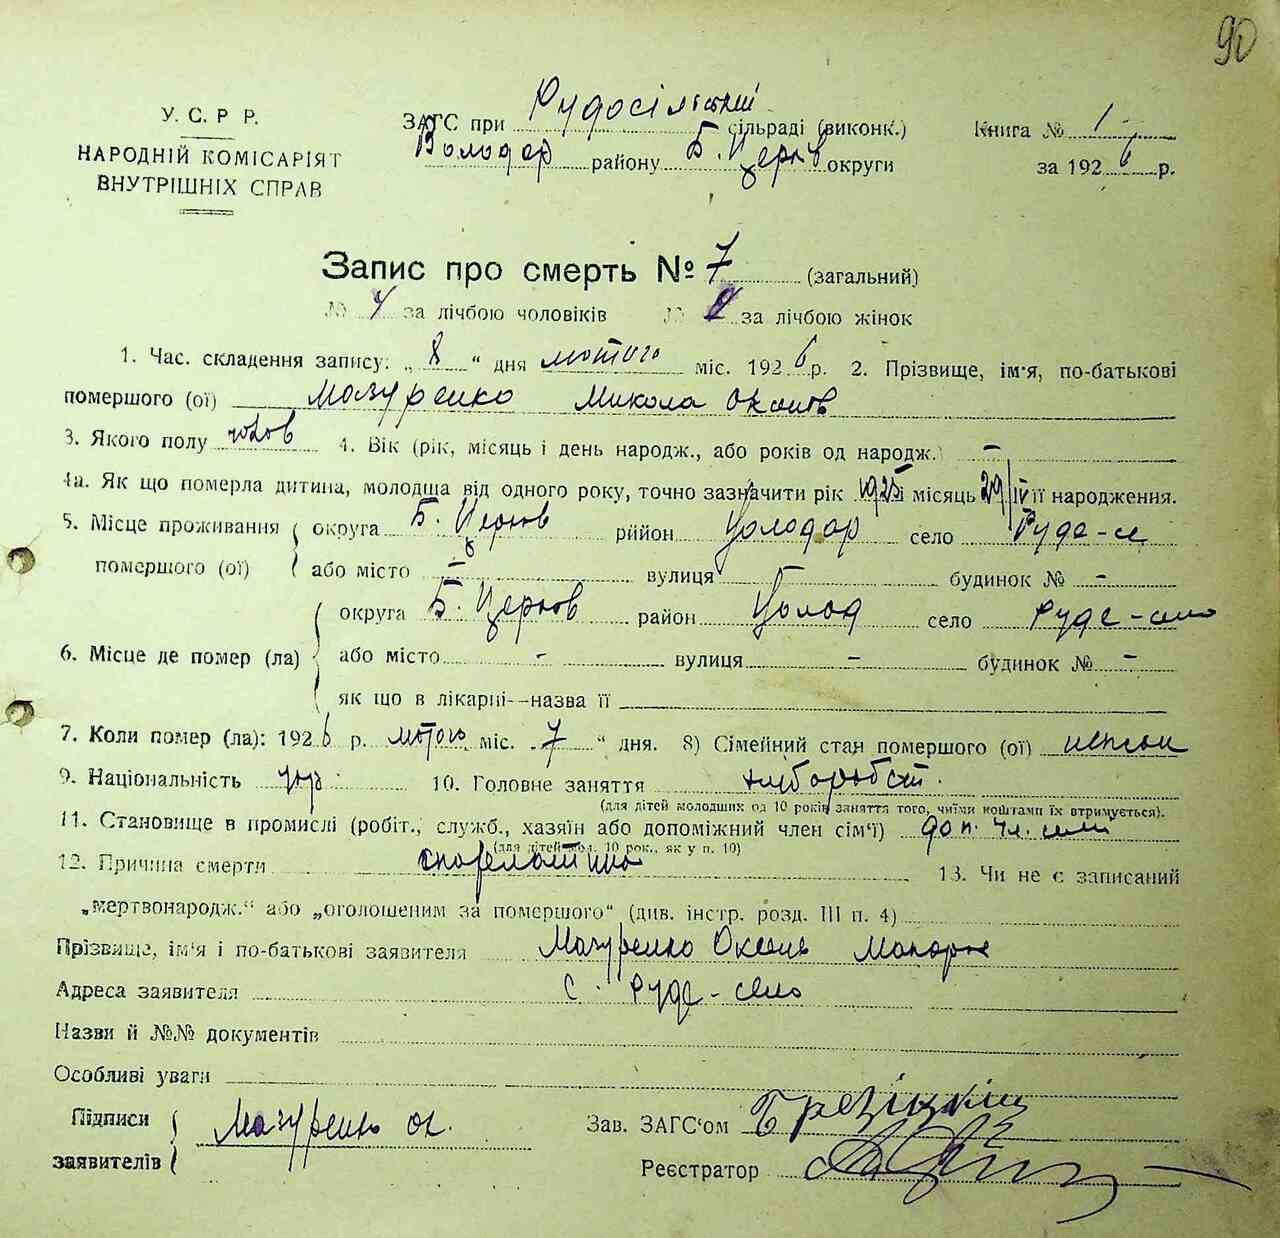 90
У. С. Р Р.
НАРОДНІЙ КОМІСАРІЯТ
ВНУТРІШНІХ СПРАВ
ЗАГС при Рудосільській сільраді (виконк.)
Володар району Б. Церків округи
Книга № 1
за 1926 р.
Запис про смерть № 7 (загальний)
№ 4 за лічбою чоловіків № за лічбою жінок
1. Час. складення запису: „ 8 “ дня лютого міс. 1926 р. 2. Прізвище, ім'я, по-батькові
помершого (ої) Мазуренко Микола Оксентів
3. Якого полу чолов 4. Вік (рік, місяць і день народж., або років од народж.) –
4а. Як що померла дитина, молодща від одного року, точно зазначити рік 1925 місяць 29/IV її народження.
5. Місце проживання округа Б. Церків рийон Володар село Руде-се
помершого (ої) або місто – вулиця – будинок № –
округа Б. Церків район Волод село Руде-село
6. Місце де помер (ла) або місто - вулиця – будинок № –
як що в лікарні--назва її
7. Коли помер (ла): 1926 р. лютого міс. „ 7 “ дня. 8) Сімейний стан помершого (ої)
9. Національність укр. 10. Головне заняття хліборобст.
(для дітей молодших од 10 років заняття того, чиїми коштами їх втримується).
11. Становище в промислі (робіт., служб., хазяїн або допоміжний член сім'ї) доп. чл. сем
(для дітей мол. 10 рок., як у п. 10)
12. Причина смерти скарлатина 13. Чи не є записаний
„мертвонародж.“ або „оголошеним за помершого“ (див. інстр. розд. III п. 4)
Прізвище, ім'я і по-батькові заявителя Мазуренко Оксень Макарів
Адреса заявителя с. Руде-село
Назви й №№ документів
Особливі уваги
Підписи
заявителів
Мазуренко Ок.
Зав. ЗАГС'ом
Реєстратор